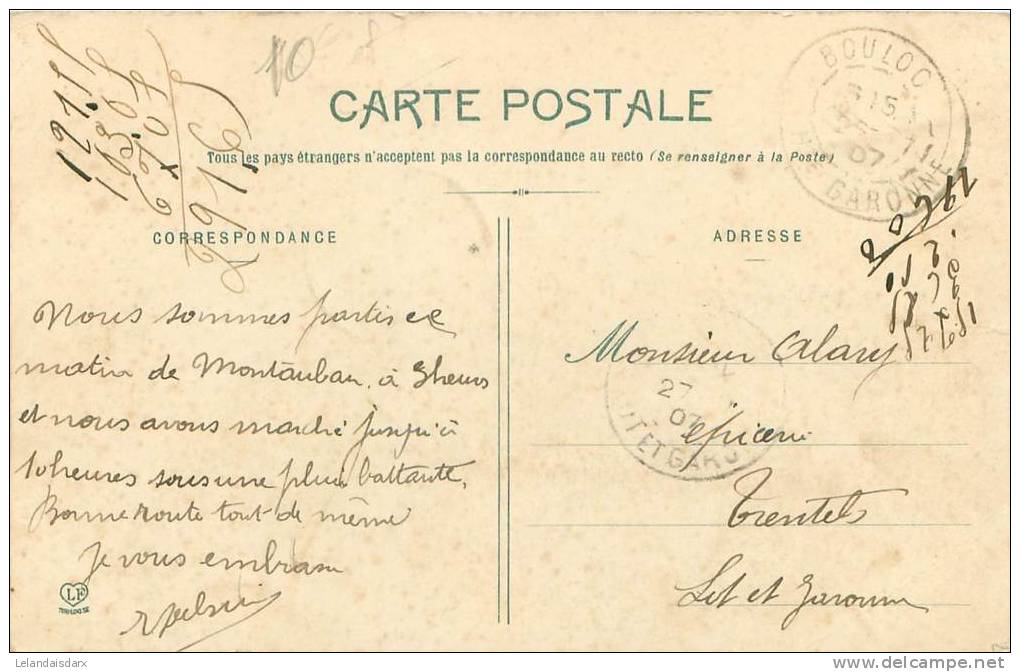 10
CARTE POSTALE
Tous les pays étrangers n'acceptent pas la correspondance au recto (Se renseigner à la Poste)
BOULOC
15
07
GARONNE
CORRESPONDANCE
ADRESSE
Nous sommes partis ce
matin de Montauban, à 3 heures
et nous avons marché jusqu'à
10 heures sous une pluie battante,
Bonne route tout de même
Je vous embrasse
LF
Monsieur Alary
épicerie
Trentels
Lot et Garonne
27
07
LOT ET GARONNE
Lelandaisdarx
delcampe.net